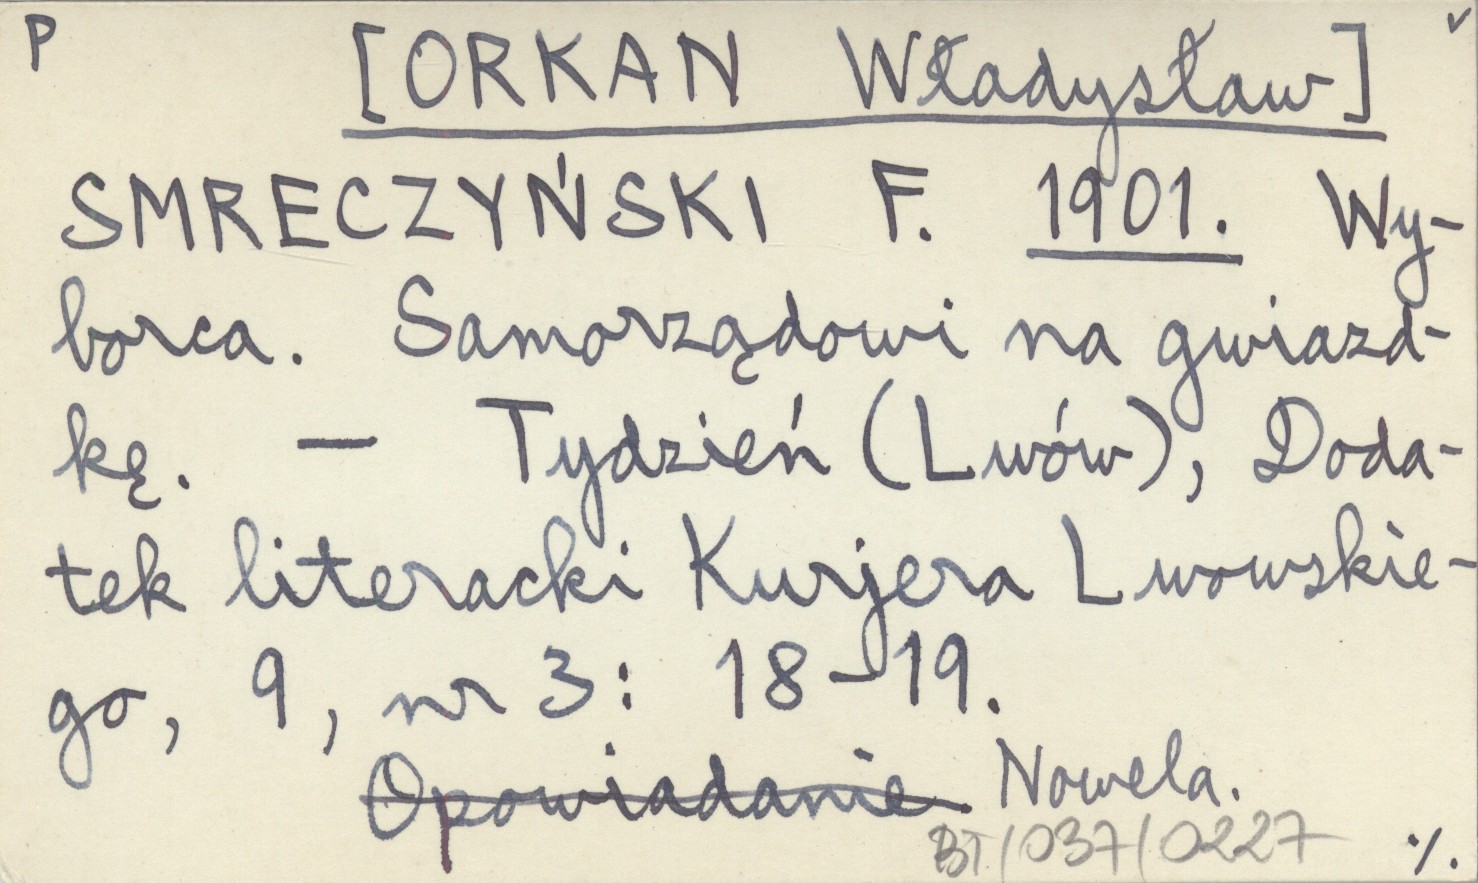 P [ORKAN Władysław] v
SMRECZYŃSKI F. 1901. Wy-
borca. Samorządowi na gwiazd-
kę. — Tydzień (Lwów), Doda-
tek literacki Kurjera Lwowskie-
go, 9, nr 3: 18-19.
Opowiadanie. Nowela.
BT/037/0227 ·/.